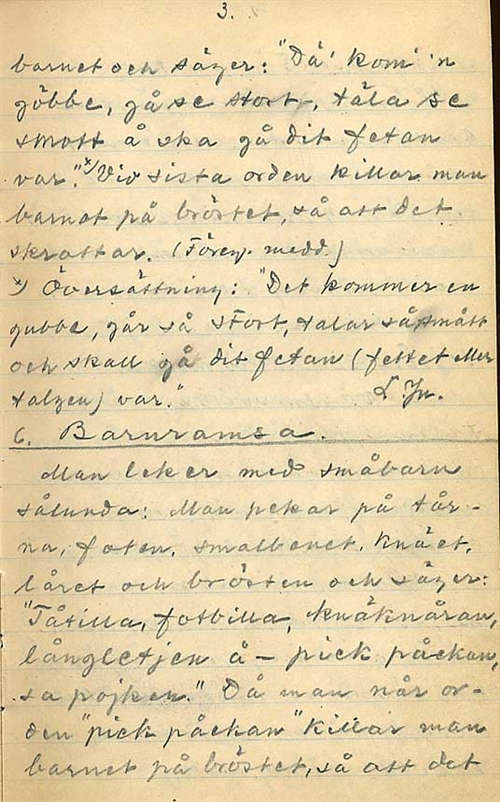 3.
barnet och säger: "Dä' kom' 'n
göbbe, gå se stort, täla se
smott å ska gå dit fetan
var."x) Vid sista orden killar man
barnet på bröstet, så att det
skrattar. (Föreg. medd.)
x) Översättning: "Det kommer en
gubbe, går så stort, talar så smått
och skall gå dit fetan (fettet eller
talgen) var."
6. Barnramsa.
Man leker med småbarn
sålunda: Man pekar på tår-
na, foten, smalbenet, knäet,
låret och brösten och säger:
"Tåtilla, fotbilla, knäknåran,
långletjen å - pick påckan,
sa pojken." Då man når or-
den "pick påckan" killar man
barnet på bröstet, så att det